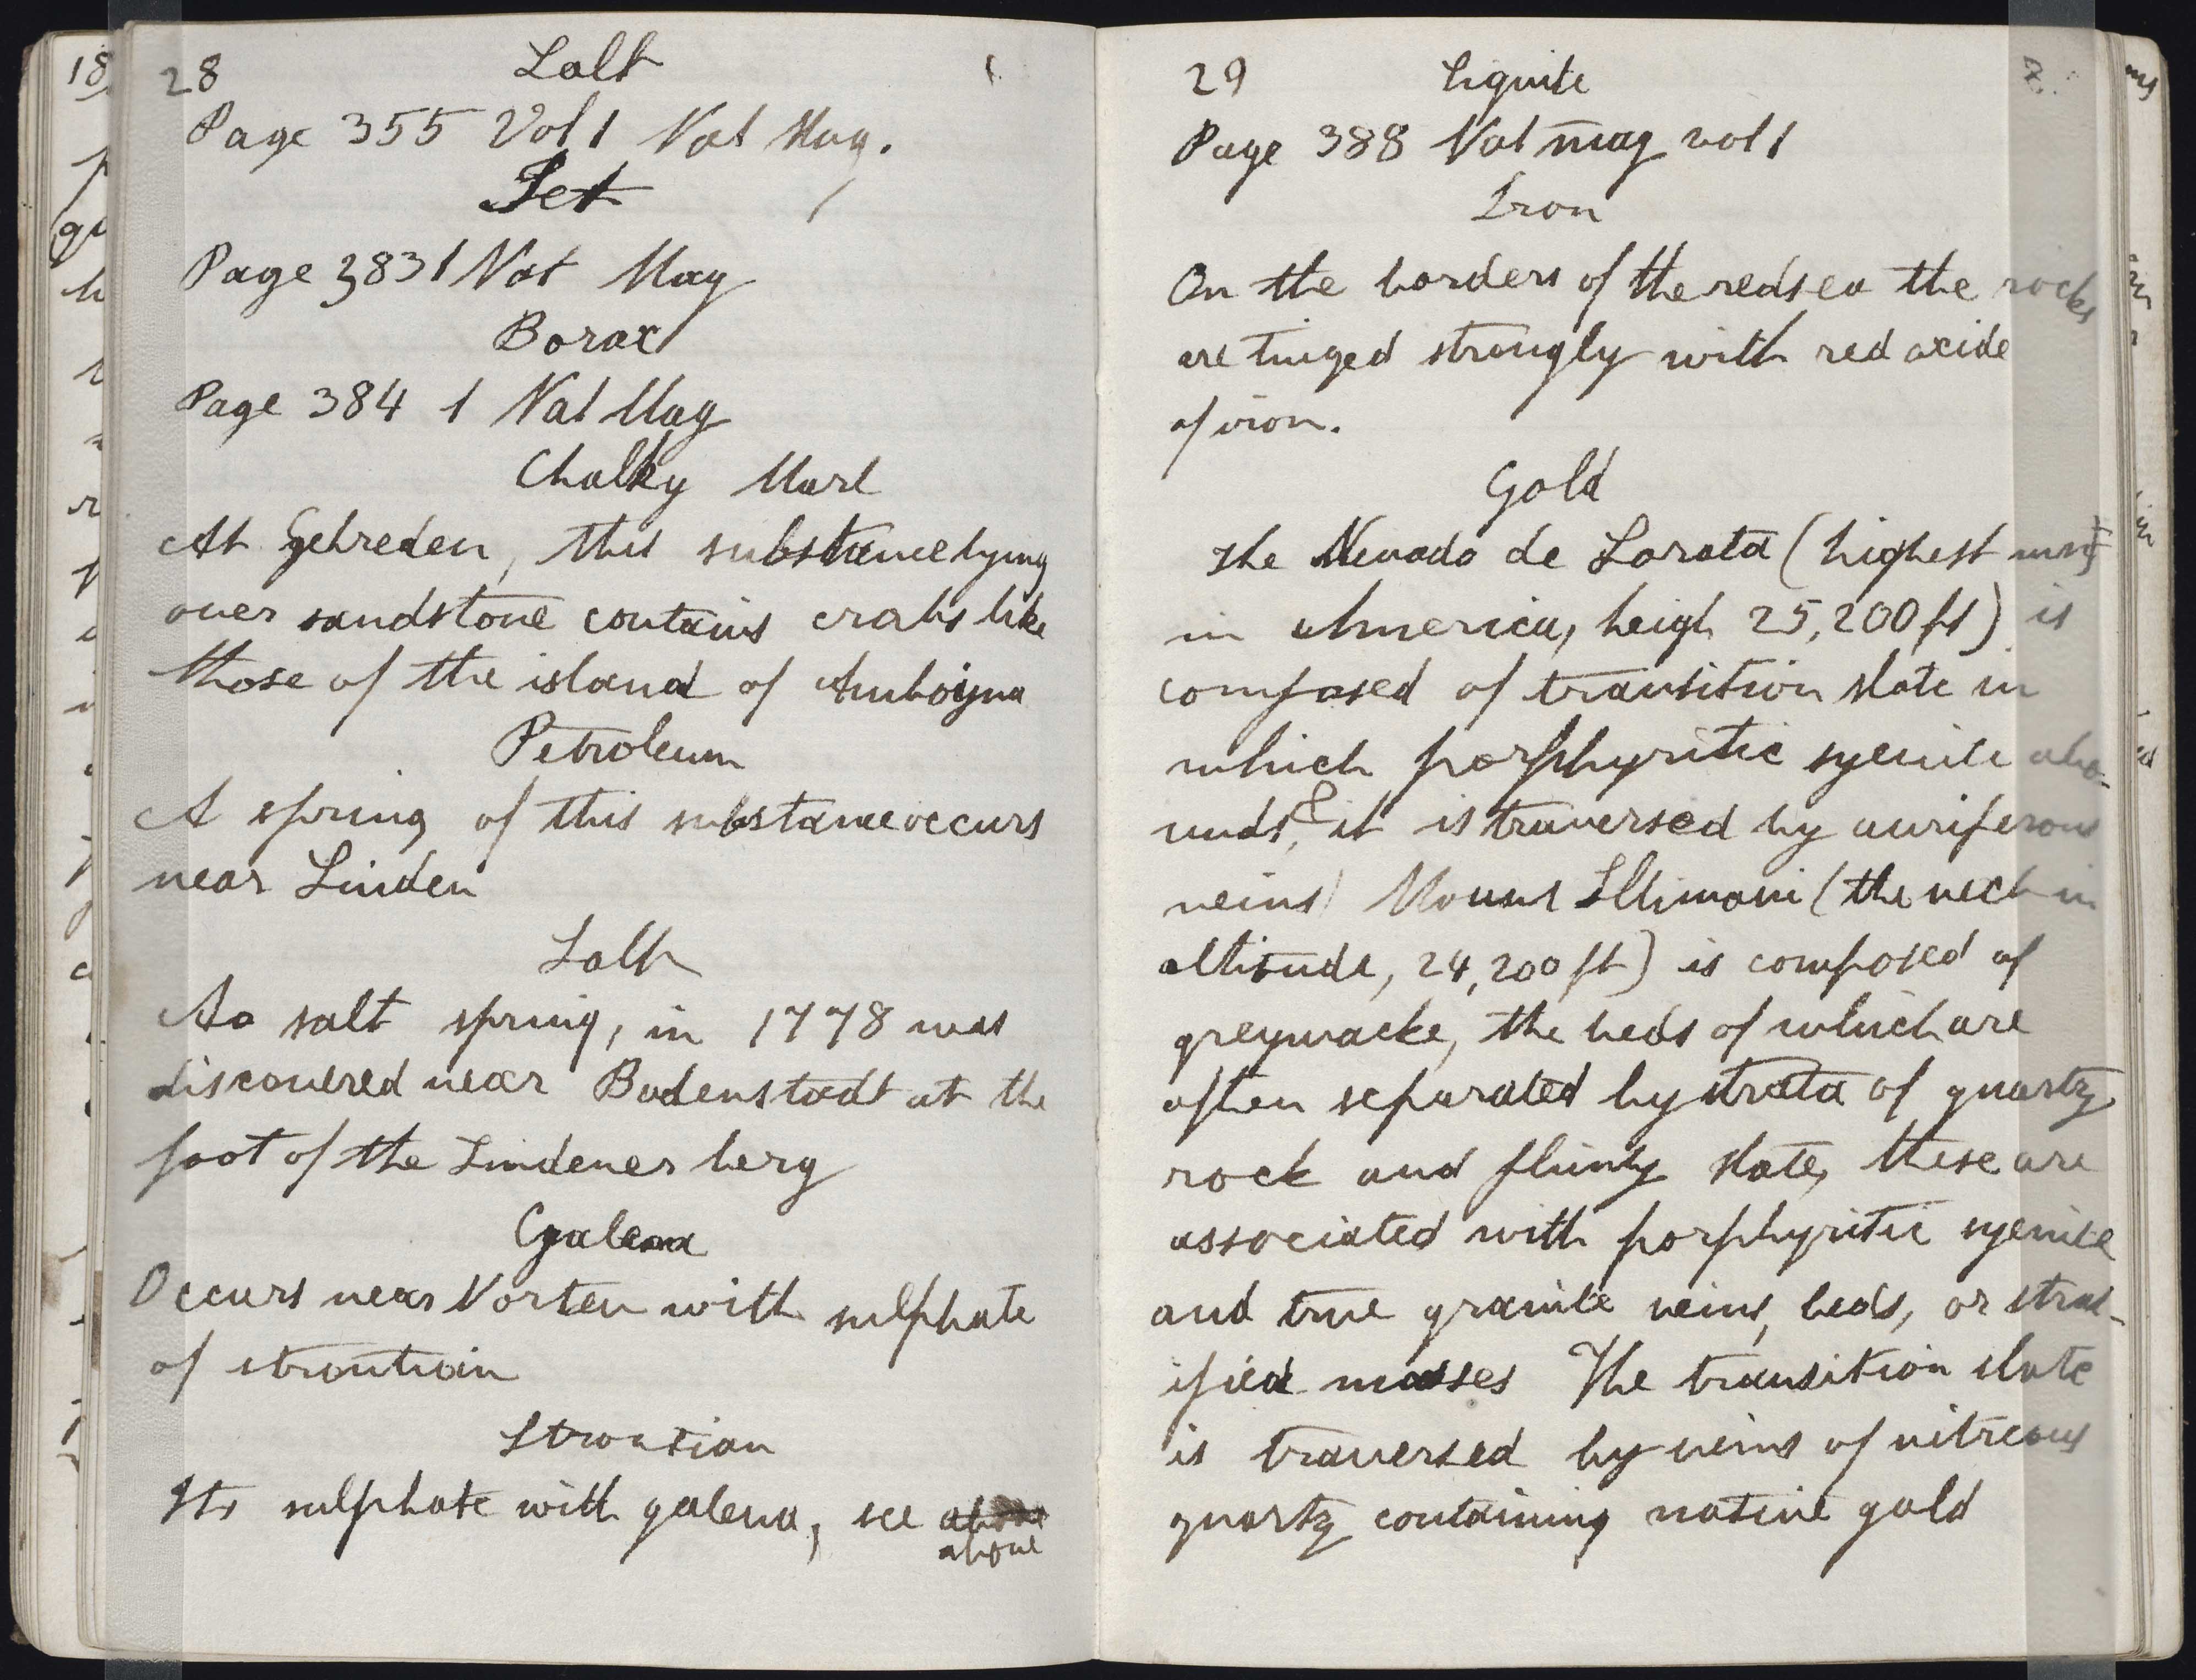 28
Salt
Page 355 Vol 1 Nat Mag.
Jet
Page 383 1 Nat Mag
Borax
Page 384 1 Nat Mag
Chalky Marl
At Gehreden, this substance lying
over sandstone contains crabs like
those of the island of Amboyna
Petroleum
A spring of this substance occurs
near Linden
Salt
Aa salt spring, in 1778 was
discovered near Badenstadt at the
foot of the Lindener berg
Galena
Occurs near Vorten with sulphate
of strontian
Strontian
Its sulphate with galena, see above
above
29
Lignite
Page 388 Nat mag vol 1
Iron
On the borders of the red sea the rocks
are tinged strongly with red oxide
of iron.
Gold
The Nevado de Sorata (highest
in America, heigh 25,200 ft) is
composed of transition slate in
which porphyritic syenite abo-
unds, & it is traversed by auriferous
veins Mount Illimani (the next in
altitude, 24,200 ft) is composed of
greywacke, the beds of which are
often separated by strata of quartz
rock and flinty slate, these are
associated with porphyritic syenite
and true granite veins, beds, or strat-
ified masses The transition slate
is traversed by veins of vitreous
quartz containing native gold